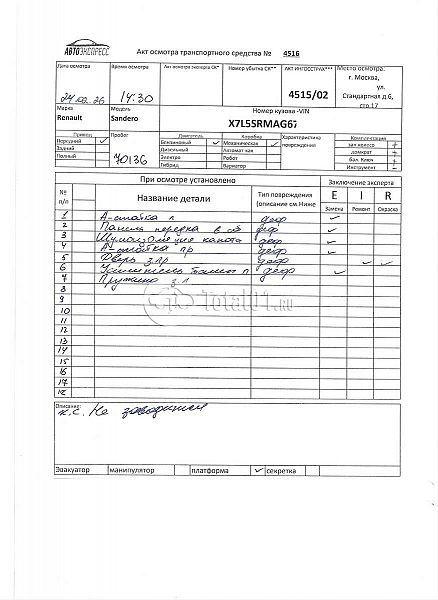 АВТОЭКСПРЕСС
Акт осмотра транспортного средства № 4516
Дата осмотра Время осмотра Акт осмотра эксперта СК* Номер убытка СК** АКТ ИНГОССТРАХ*** Место осмотра:
г. Москва,
ул.
Стандартная д.6,
стр.17
14:30 4515/02
Марка Модель Номер кузова -VIN
Renault Sandero X7L5SRMAG67
Привод Пробег Двигатель Коробка Характеристика повреждений Комплектация
Передний ✓ Бензиновый ✓ Механическая ✓ зап колесо +
Задний Дизельный Автомат-кая домкрат +
Полный 40136 Электро Робот бал. Ключ +
Гибрид Вариатор Инструмент -
При осмотре установлено Заключение эксперта
№ п/п Название детали Тип повреждения (описание см Ниже E I R
Замена Ремонт Окраска
1 А-стойка п деф ✓
2 Панель передка в сб деф ✓
3 Шумоизоляция капота деф ✓
4 А-стойка пр деф ✓
5 Дверь з.пр деф ✓ ✓
6 Усилитель п деф ✓
7 Пружина з.л
8
9
10
11
12
13
14
15
16
17
Total01.RU
Описание:
Не заводится
Эвакуатор манипулятор платформа ✓ секретка